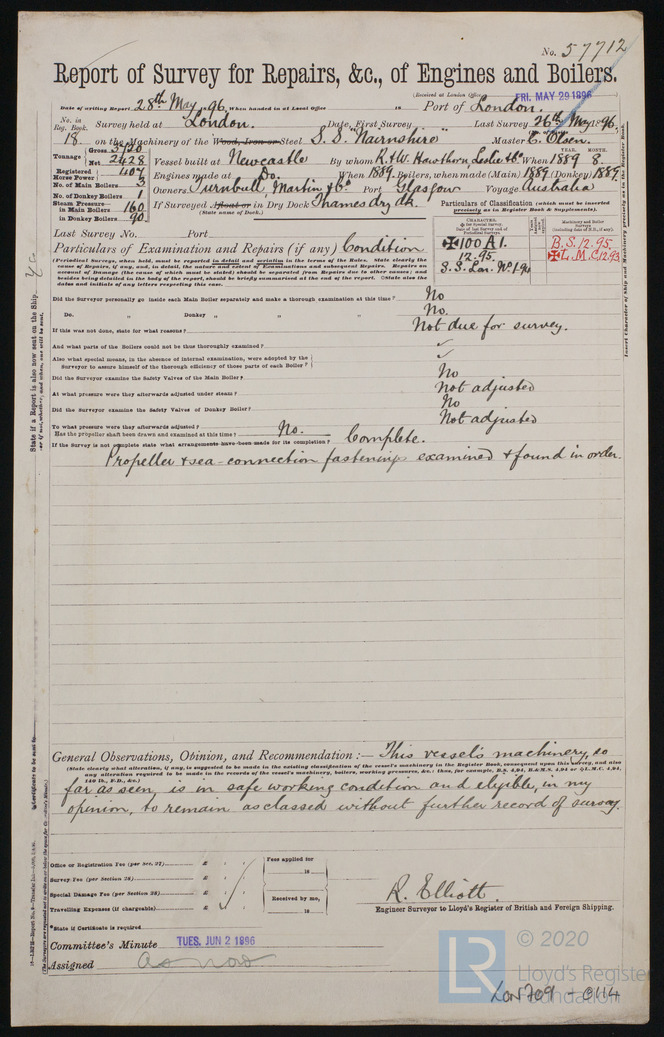 No. 57712
Report of Survey for Repairs, &c., of Engines and Boilers.
(Received at London Office FRI. MAY 29 1896
Date of writing Report 28th May 1896 When handed in at Local Office 18 Port of London.
No. in Reg. Book. Survey held at London. Date, First Survey Last Survey 26th May 1896,
18. on the Machinery of the Wood, Iron or Steel S.S. "Nairnshire" Master C. Olsen.
Tonnage Gross 3720 Net 2428 Vessel built at Newcastle By whom R. & W. Hawthorn, Leslie & Co When 1889 8.
YEAR. MONTH.
Registered Horse Power 407 Engines made at Do. When 1889. Boilers, when made (Main) 1889 (Donkey) 1889.
No. of Main Boilers 3 Owners Turnbull, Martin & Co. Port Glasgow Voyage Australia
No. of Donkey Boilers 1
Steam Pressure in Main Boilers 160 If Surveyed Afloat or in Dry Dock Thames dry dk.
in Donkey Boilers 90 (State name of Dock.)
Particulars of Classification (which must be inserted precisely as in Register Book & Supplements).
CHARACTER.
Machinery and Boiler Surveys
100 A1. B.S. 12.95.
12.95. L.M.C. 12.93
Last Survey No. Port
Particulars of Examination and Repairs (if any) Condition
(Periodical Surveys, when held, must be reported in detail and seriatim in the terms of the Rules. State clearly the
cause of Repairs, if any, and, in detail, the nature and extent of Examinations and subsequent Repairs. Repairs on
account of Damage (the cause of which must be stated) should be separated from Repairs due to other causes; and
besides being detailed in the body of the report, should be briefly summarised at the end of the report. State also the
dates and initials of any letters respecting this case.
Did the Surveyor personally go inside each Main Boiler separately and make a thorough examination at this time? No
Do. " Donkey " " " ? No.
If this was not done, state for what reasons? Not due for survey.
And what parts of the Boilers could not be thus thoroughly examined?
Also what special means, in the absence of internal examination, were adopted by the
Surveyor to assure himself of the thorough efficiency of those parts of each Boiler?
Did the Surveyor examine the Safety Valves of the Main Boiler? No
At what pressure were they afterwards adjusted under steam? Not adjusted
Did the Surveyor examine the Safety Valves of Donkey Boiler? No
To what pressure were they afterwards adjusted? Not adjusted
Has the propeller shaft been drawn and examined at this time? No.
If the Survey is not complete state what arrangements have been made for its completion? Complete.
Propeller & sea-connection fastenings examined & found in order.
General Observations, Opinion, and Recommendation :— This vessel's machinery, so
(State clearly what alteration, if any, is suggested to be made in the existing classification of the vessel's machinery in the Register Book, consequent upon this survey, and also
any alteration required to be made in the records of the vessel's machinery, boilers, working pressures, &c.: thus, for example, B.S. 4,94, B.&M.S. 4,94 or L.M.C. 4,94,
140 lb., F.D., &c.)
far as seen, is in safe working condition and eligible, in my
opinion, to remain as classed without further record of survey.
Office or Registration Fee (per Sec. 27) £
Survey Fee (per Section 28) £
Special Damage Fee (per Section 28) £
Travelling Expenses (if chargeable) £
Fees applied for
18
Received by me,
18
R. Elliott.
Engineer Surveyor to Lloyd's Register of British and Foreign Shipping.
*State if Certificate is required
Committee's Minute TUES. JUN 2 1896
Assigned as now
LR © 2020
Lloyd's Register
Foundation
LON709-0114